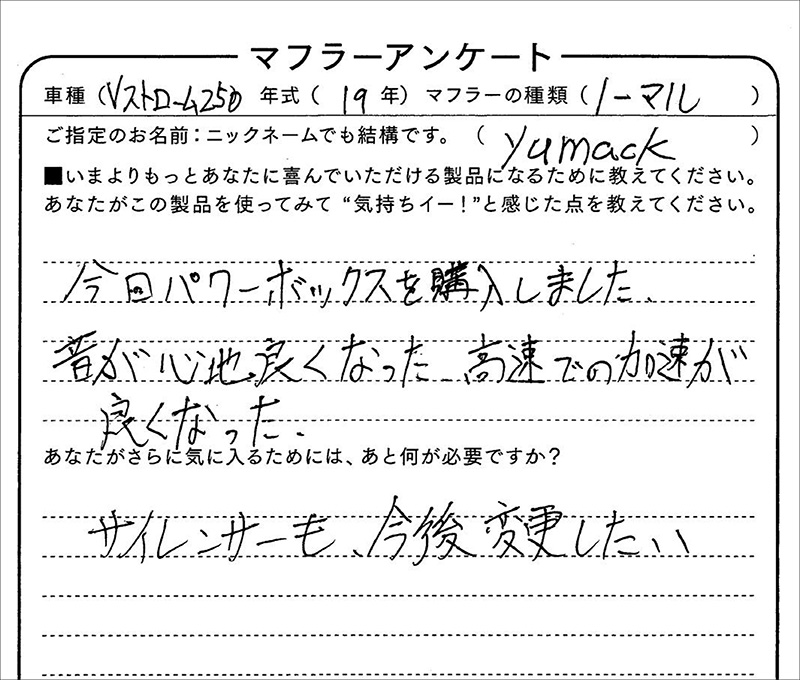 マフラーアンケート
車種（Vストローム250 年式（ 19 年）マフラーの種類（ノーマル ）
ご指定のお名前：ニックネームでも結構です。（ yumack ）
■いまよりもっとあなたに喜んでいただける製品になるために教えてください。
あなたがこの製品を使ってみて“気持ちイー！”と感じた点を教えてください。
今回パワーボックスを購入しました、
音が心地良くなった、高速での加速が
良くなった、
あなたがさらに気に入るためには、あと何が必要ですか？
サイレンサーも、今後変更したい